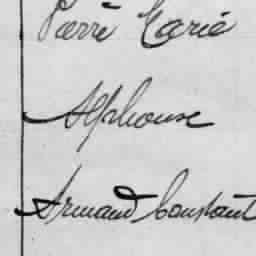 Pierre Marie
Alphonse
Armand Constant